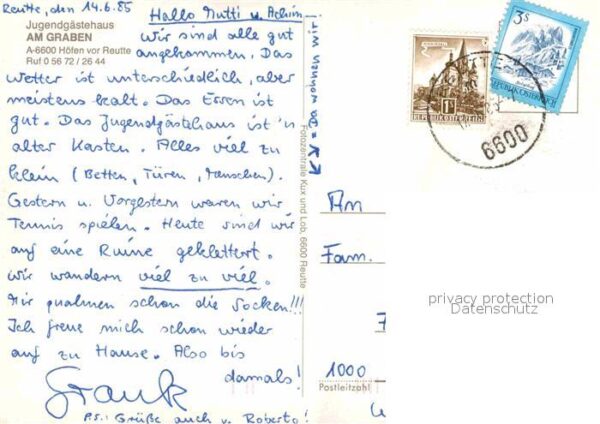 Reutte, den 14.6.85
Jugendgästehaus
AM GRABEN
A-6600 Höfen vor Reutte
Ruf 0 56 72 / 26 44
Hallo Mutti u. Achim!
Wir sind alle gut
angekommen. Das
Wetter ist unterschiedlich, aber
meistens kalt. Das Essen ist
gut. Das Jugendgästehaus ist 'n
alter Kasten. Alles viel zu
klein (Betten, Türen, Menschen).
Gestern u. Vorgestern waren wir
Tennis spielen. Heute sind wir
auf eine Ruine geklettert.
Wir wandern viel zu viel.
Mir qualmen schon die Socken!!!
Ich freue mich schon wieder
auf zu Hause. Also bis
damals!
Frank
P.S.: Grüße auch v. Roberto!
= Da wohnen wir!
Fotozentrale Kux und Lob, 6600 Reutte
An
Fam.
1000
Postleitzahl
1S
REPUBLIK ÖSTERREICH
3S
REPUBLIK ÖSTERREICH
6600
privacy protection
Datenschutz